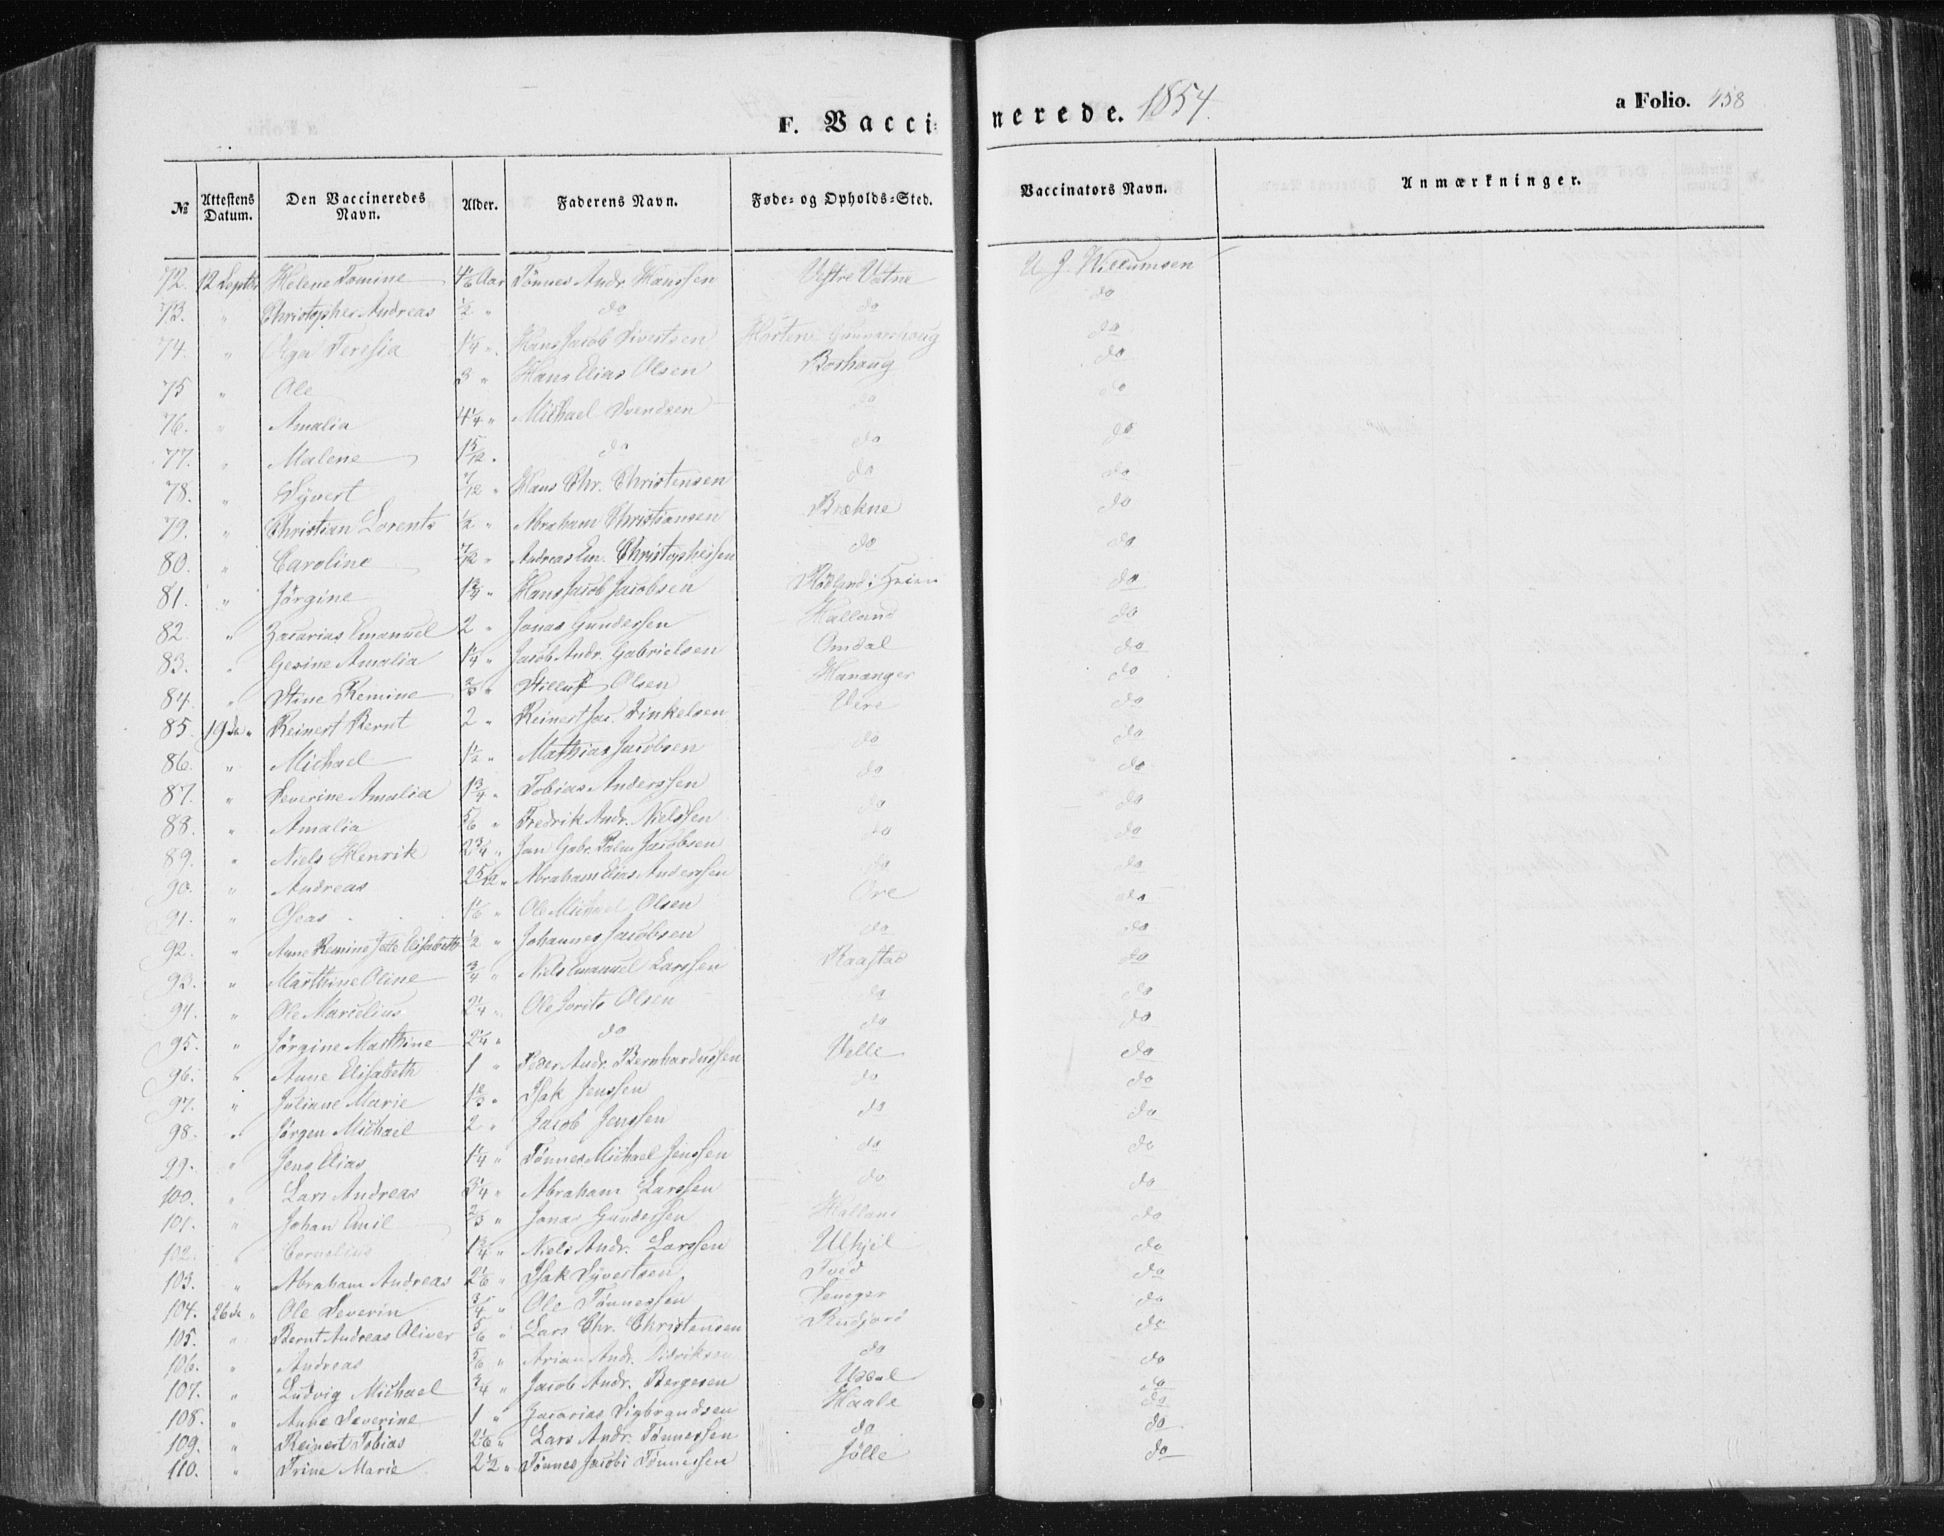 F. Vaccinerede. 1854.
a Folio. 458
№ | Attestens Datum. | Den Vaccineredes Navn. | Alder. | Faderens Navn. | Føde- og Opholds-Sted. | Vaccinators Navn. | Anmærkninger.
72. 12 Septbr Helene Tomine 4 1/6 Aar Tönnes Andr. Hanssen Vestre Vatne U J. Willumsen
73. " Christopher Andreas 1/2 " do do do
74. " Olga Teresia 1 1/4 " Hans Jacob Sivertsen Gunnarshaug do
75 " Ole 3 " Hans Elias Olsen Boshaug do
76. " Amalia 4 1/4 " Michael Svendsen do do
77. " Malene 1 5/12 " do do do
78. " Syvert 7/12 " Hans Chr. Christensen do do
79. " Christian Lorents 1/2 " Abraham Christiansen Brækne do
80. " Caroline 7/12 " Andreas Em. Christophersen do do
81. " Jörgine 1 3/4 " Hans Jacob Jacobsen Rödland i Heien do
82 " Zacarias Emanuel 2 " Jonas Gundersen Halland do
83. " Gesine Amalia 1 1/4 " Jacob Andr. Gabrielsen Omdal do
84. " Stine Remine 2/3 " Olsen Hananger do
85. 19 de " Reinert Bernt 2 " Reinert Jac. Tinkelsen Vere do
86. " Michael 1 1/2 " Mathias Jacobsen do do
87. " Severine Amalia 1 3/4 " Tobias Anderssen do do
88. " Amalia 5/6 " Fredrik Andr. Nielssen do do
89. " Niels Henrik 2 3/4 " Jan Gabr. Palm Jacobsen do do
90. " Andreas 2 5/12 " Abraham Elias Anderssen do do
91. " Oseas 1 1/6 " Ole Michael Olsen Ore do
92. " Anne Remine Jette Elisabeth 1/2 " Johannes Jacobsen do do
93. " Marthine Oline 3/4 " Niels Emanuel Larssen Raastad do
94. " Ole Marcelius 2 1/4 " Ole Jorits Olsen do do
95. " Jörgine Marthine 2 1/4 " do do do
96. " Anne Elisabeth 1 " Peder Andr. Bernhardussen Velle do
97. " Juliane Marie 1 2/3 " Isak Jenssen do do
98. " Jörgen Michael 2 " Jacob Jenssen do do
99. " Jens Elias 1 1/4 " Tönnes Michael Jenssen do do
100. " Lars Andreas 3 1/4 " Abraham Larssen do do
101. " Johan Emil 2/3 " Jonas Gundersen Halland do
102. " Cornelius 1 3/4 " Niels Andr. Larssen Ulkjel do
103. " Abraham Andreas 2 1/6 " Isak Syvertsen Tved do
104. 26 de " Ole Severin 3/4 " Ole Tönnessen do
105. " Bernt Andreas Oliver 5/6 " Lars Chr. Christensen Rudjord do
106. " Andreas 5/6 " Arian Andr. Didriksen do do
107. " Ludvig Michael 3/4 " Jacob Andr. Bergesen do
108. " Anne Severine 1 " Zacarias Sigbrandsen do
109. " Reinert Tobias 2 1/6 " Lars Andr. Tönnessen do do
110. " Trine Marie 2 1/2 " Tönnes Jacobi Tönnessen Jölle do